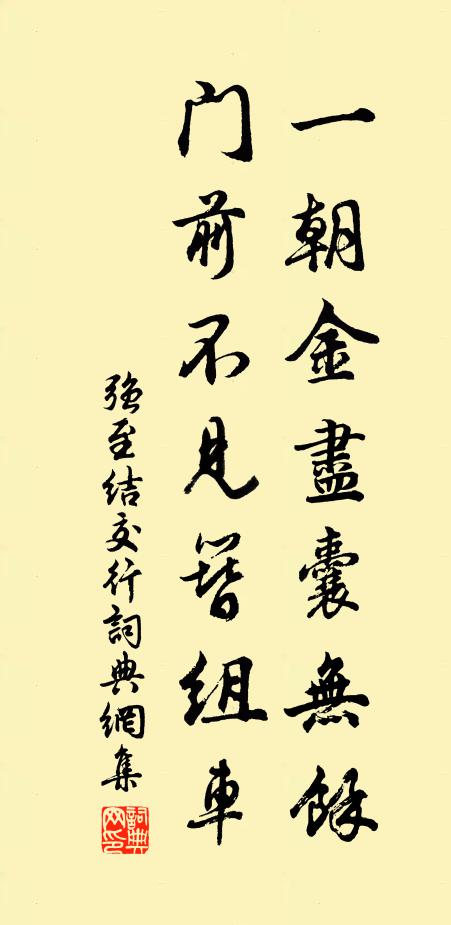 一朝金盡囊無餘
門前不見簪組車
強至結交行詞典網集
詞典網印